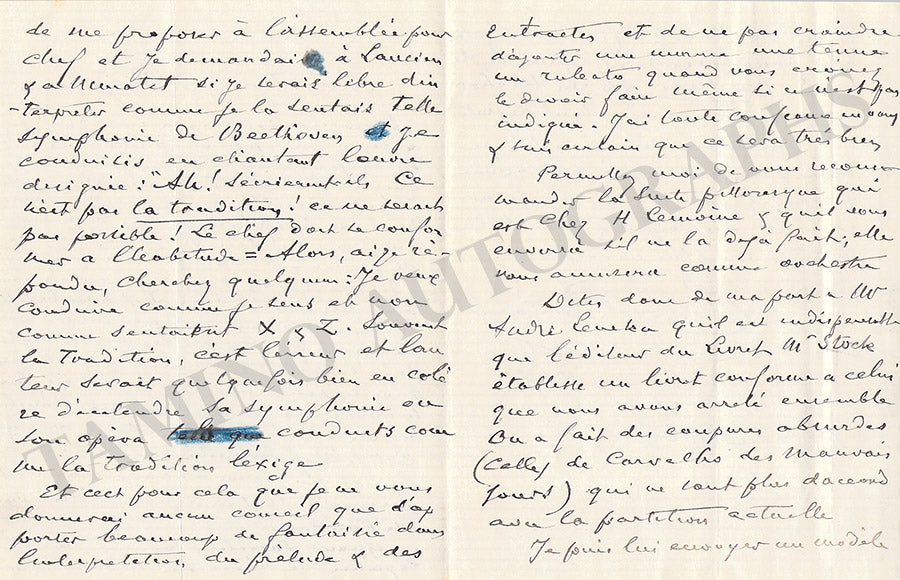 de me proposer à l'assemblée pour
chef et je demandai à
& a si je serais libre d'in
-terpréter comme je la sentais telle
symphonie de Beethoven et je
conduisis en chantant l'œuvre
désignée : "Ah! s'écrièrent-ils Ce
n'est pas la tradition! ce ne serait
pas possible! Le chef doit se confor
mer à l'habitude = Alors, ai-je ré-
pondu, cherchez quelqu'un : Je veux
conduire comme je sens et non
comme sentaient X & Z. Souvent
la Tradition, c'est l'erreur et l'au
teur serait quelquefois bien en colè
re d'entendre sa symphonie ou
son opéra telle que conduits com
me la tradition l'éxige
Et c'est pour cela que je ne vous
donnerai aucun conseil que d'ap
porter beaucoup de fantaisie dans
l'interprétation du prélude & des
entractes et de ne pas craindre
d'ajouter une nuance une tenue
un rubato quand vous croirez
le devoir faire même si ce n'est pas
indiqué. J'ai toute confiance en vous
& suis certain que ce sera très bien
Permettez moi de vous recom
mander la Suite pittoresque qui
est chez H Lemoine & qu'il vous
enverra s'il ne l'a déjà fait ; elle
vous amusera comme orchestre
Dites donc de ma part à Mr
André qu'il est indispensable
que l'éditeur du Livret Mr Stock
établisse un livret conforme a celui
que nous avons arrêté ensemble
On a fait des coupures absurdes
(Celles de Carvalho des mauvais
jours) qui ne sont plus d'accord
avec la partition actuelle
Je puis lui envoyer un modèle
TAMINO AUTOGRAPHS